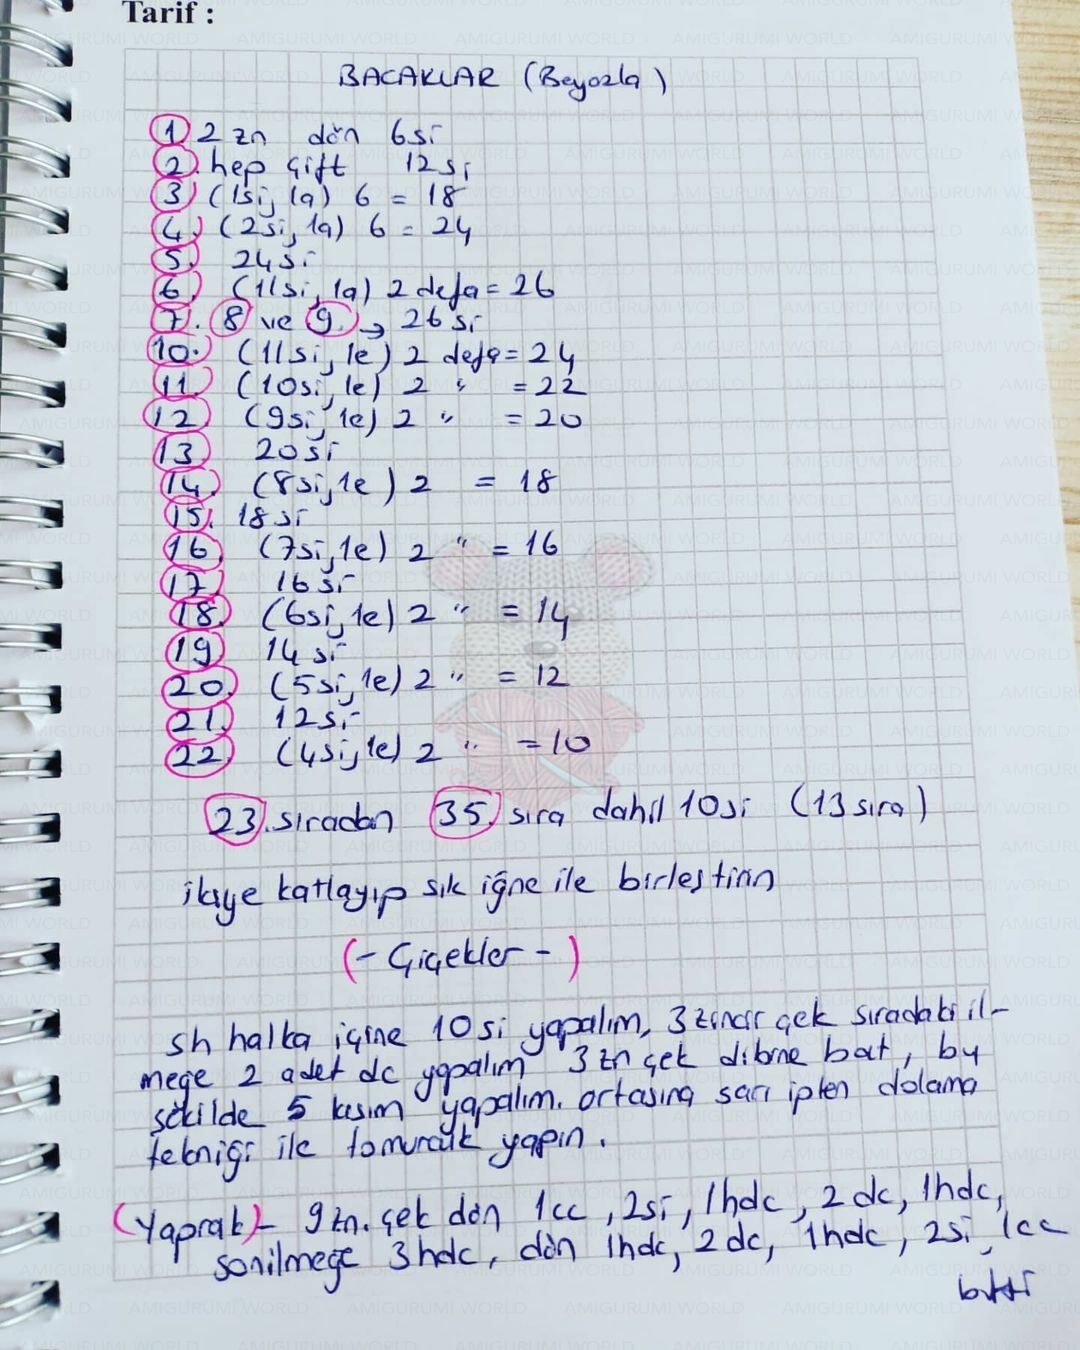 Tarif :
BACAKLAR (Beyazla)
1 2 zn dön 6si
2. hep çift 12si
3) (1si, 1a) 6 = 18
4. (2si, 1a) 6 = 24
5. 24si
6. (11si, 1a) 2 defa = 26
7. 8 ve 9. → 26 si
10. (11si, 1e) 2 defa = 24
11. (10si, 1e) 2 " = 22
12. (9si, 1e) 2 " = 20
13. 20si
14. (8si, 1e) 2 = 18
15. 18si
16. (7si, 1e) 2 " = 16
17. 16si
18. (6si, 1e) 2 " = 14
19. 14 si
20. (5si, 1e) 2 " = 12
21. 12si
22. (4si, 1e) 2 " = 10
23. sıradan 35. sıra dahil 10si (13 sıra)
ikiye katlayıp sık iğne ile birleştirin
(- Çiçekler -)
sh halka içine 10 si yapalım, 3 zincir çek sıradaki il-
meğe 2 adet dc yapalım 3 zn çek dibine bat, bu
şekilde 5 kısım yapalım. ortasına sarı ipten dolama
tekniği ile tomurcuk yapın.
(Yaprak)- 9 zn. çek dön 1cc, 2si, 1hdc, 2 dc, 1hdc,
son ilmeğe 3 hdc, dön 1hdc, 2 dc, 1hdc, 2si, 1cc
bitti